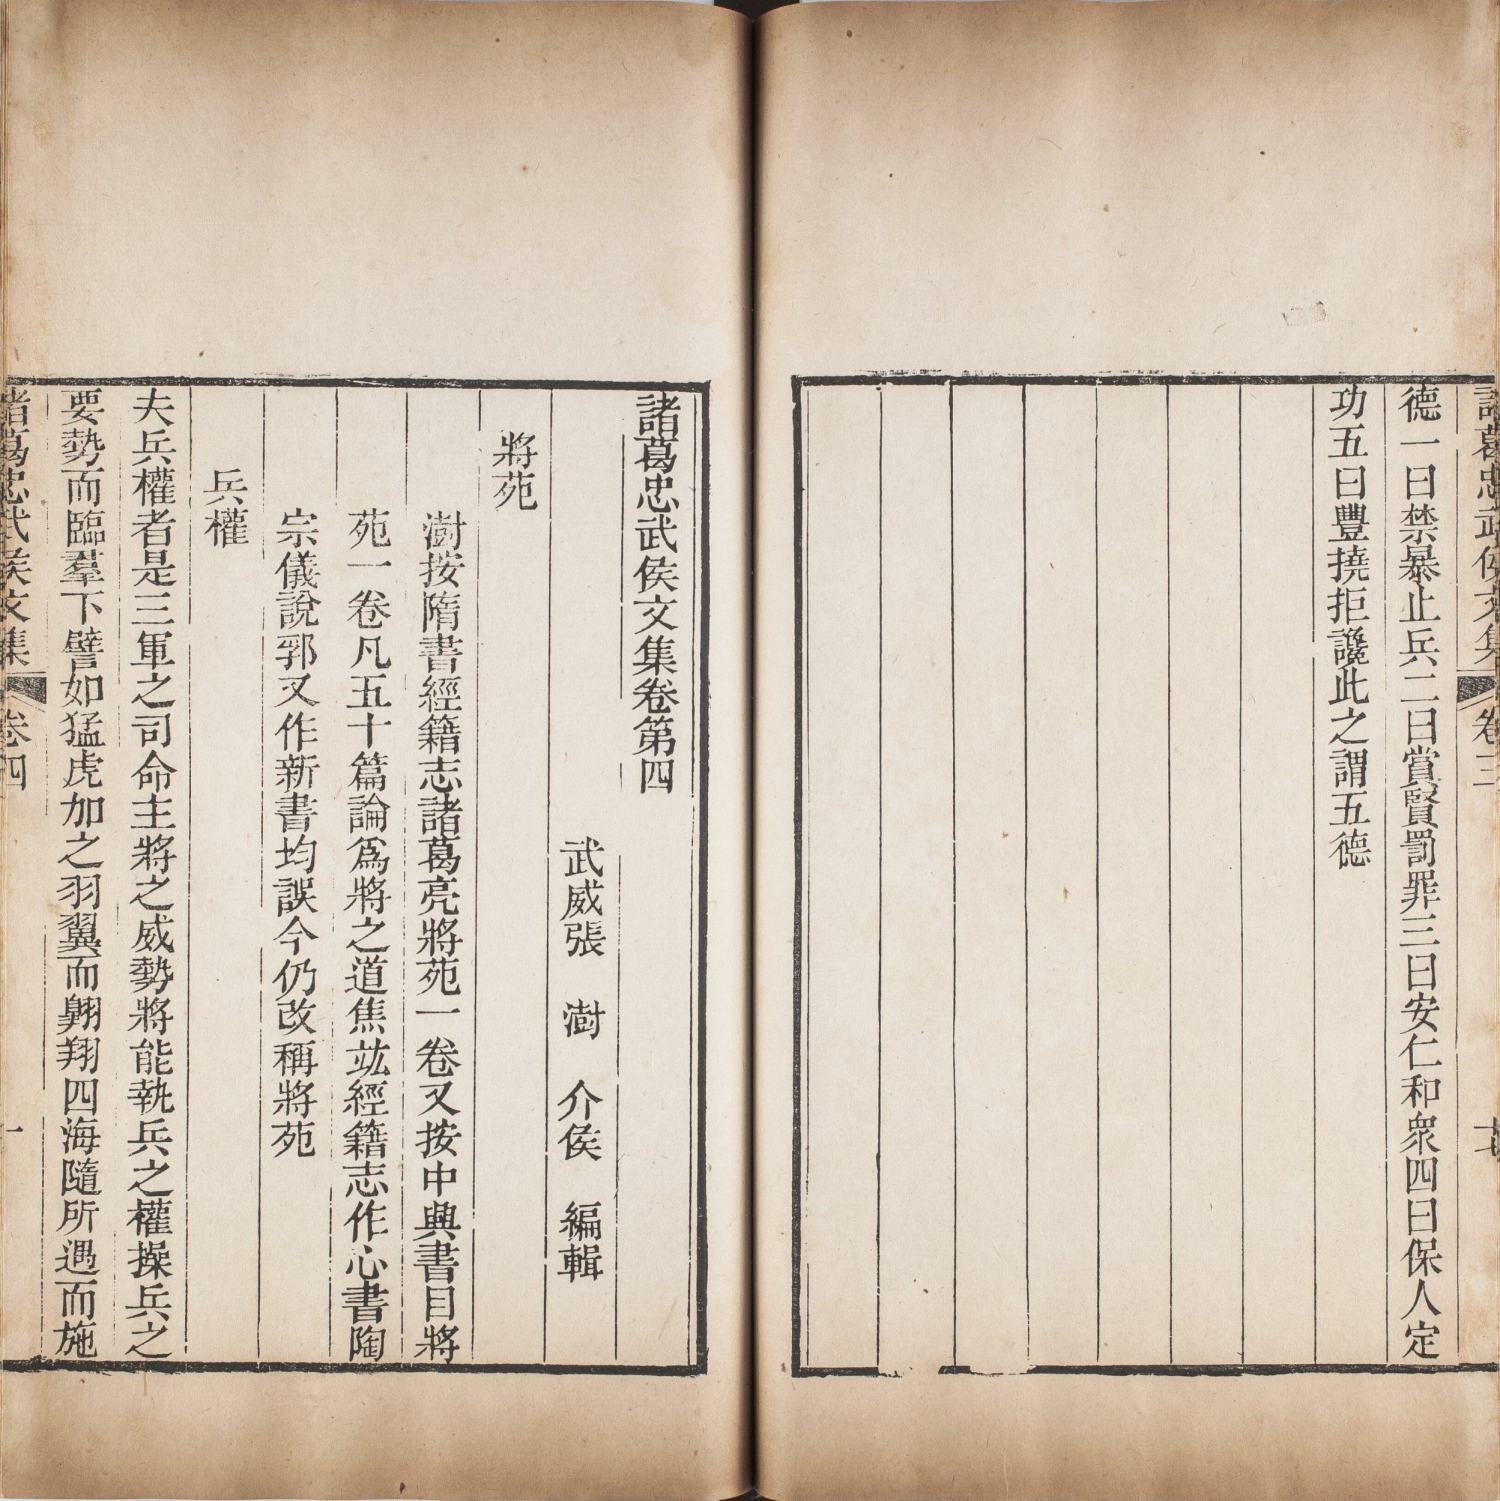 諸葛忠武侯文集
卷三
十七
德一曰禁暴止兵二曰賞賢罰罪三曰安仁和衆四曰保人定
功五曰豐撓拒讒此之謂五德
諸葛忠武侯文集卷第四
武威張　澍　介侯　編輯
將苑
澍按隋書經籍志諸葛亮將苑一卷又按中興書目將
苑一卷凡五十篇論爲將之道焦竑經籍志作心書陶
宗儀說郛又作新書均誤今仍改稱將苑
兵權
夫兵權者是三軍之司命主將之威勢將能執兵之權操兵之
要勢而臨羣下譬如猛虎加之羽翼而翺翔四海隨所遇而施
諸葛忠武侯文集
卷四
一